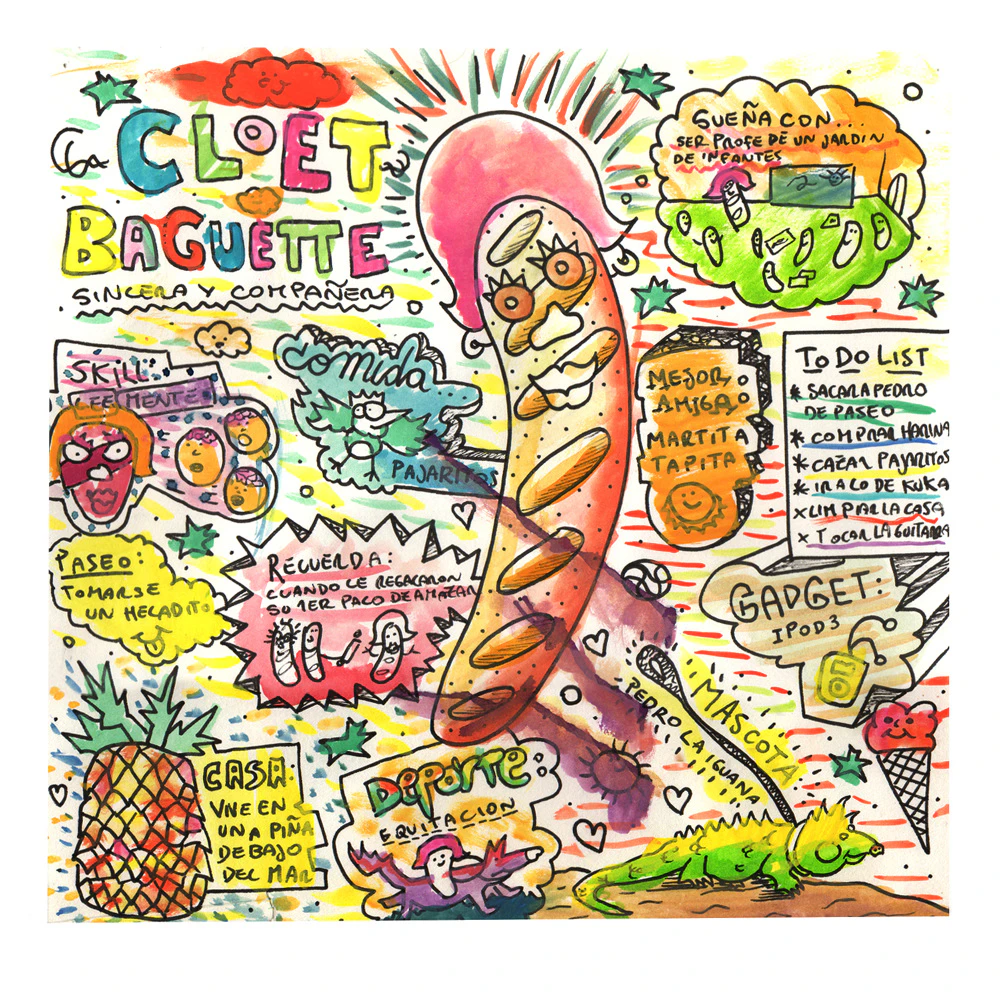 La CLOET
BAGUETTE
SINCERA Y COMPAÑERA
SUEÑA CON...
SER PROFE DE UN JARDIN
DE INFANTES
SKILL:
LEE MENTE
comida
PAJARITOS
MEJOR
AMIGA
MARTITA
TAPITA
TO DO LIST
* SACAR A PEDRO
DE PASEO
* COMPRAR HARINA
* CAZAR PAJARITOS
* IR A LO DE KUKA
x LIMPIAR LA CASA
x TOCAR LA GUITARRA
PASEO:
TOMARSE
UN HELADITO
RECUERDA:
CUANDO LE REGALARON
SU 1ER PACO DE AMAZAR
GADGET:
IPOD3
MASCOTA
PEDRO LA IGUANA
CASA:
VIVE EN
UNA PIÑA
DEBAJO
DEL MAR
DEPORTE:
EQUITACION